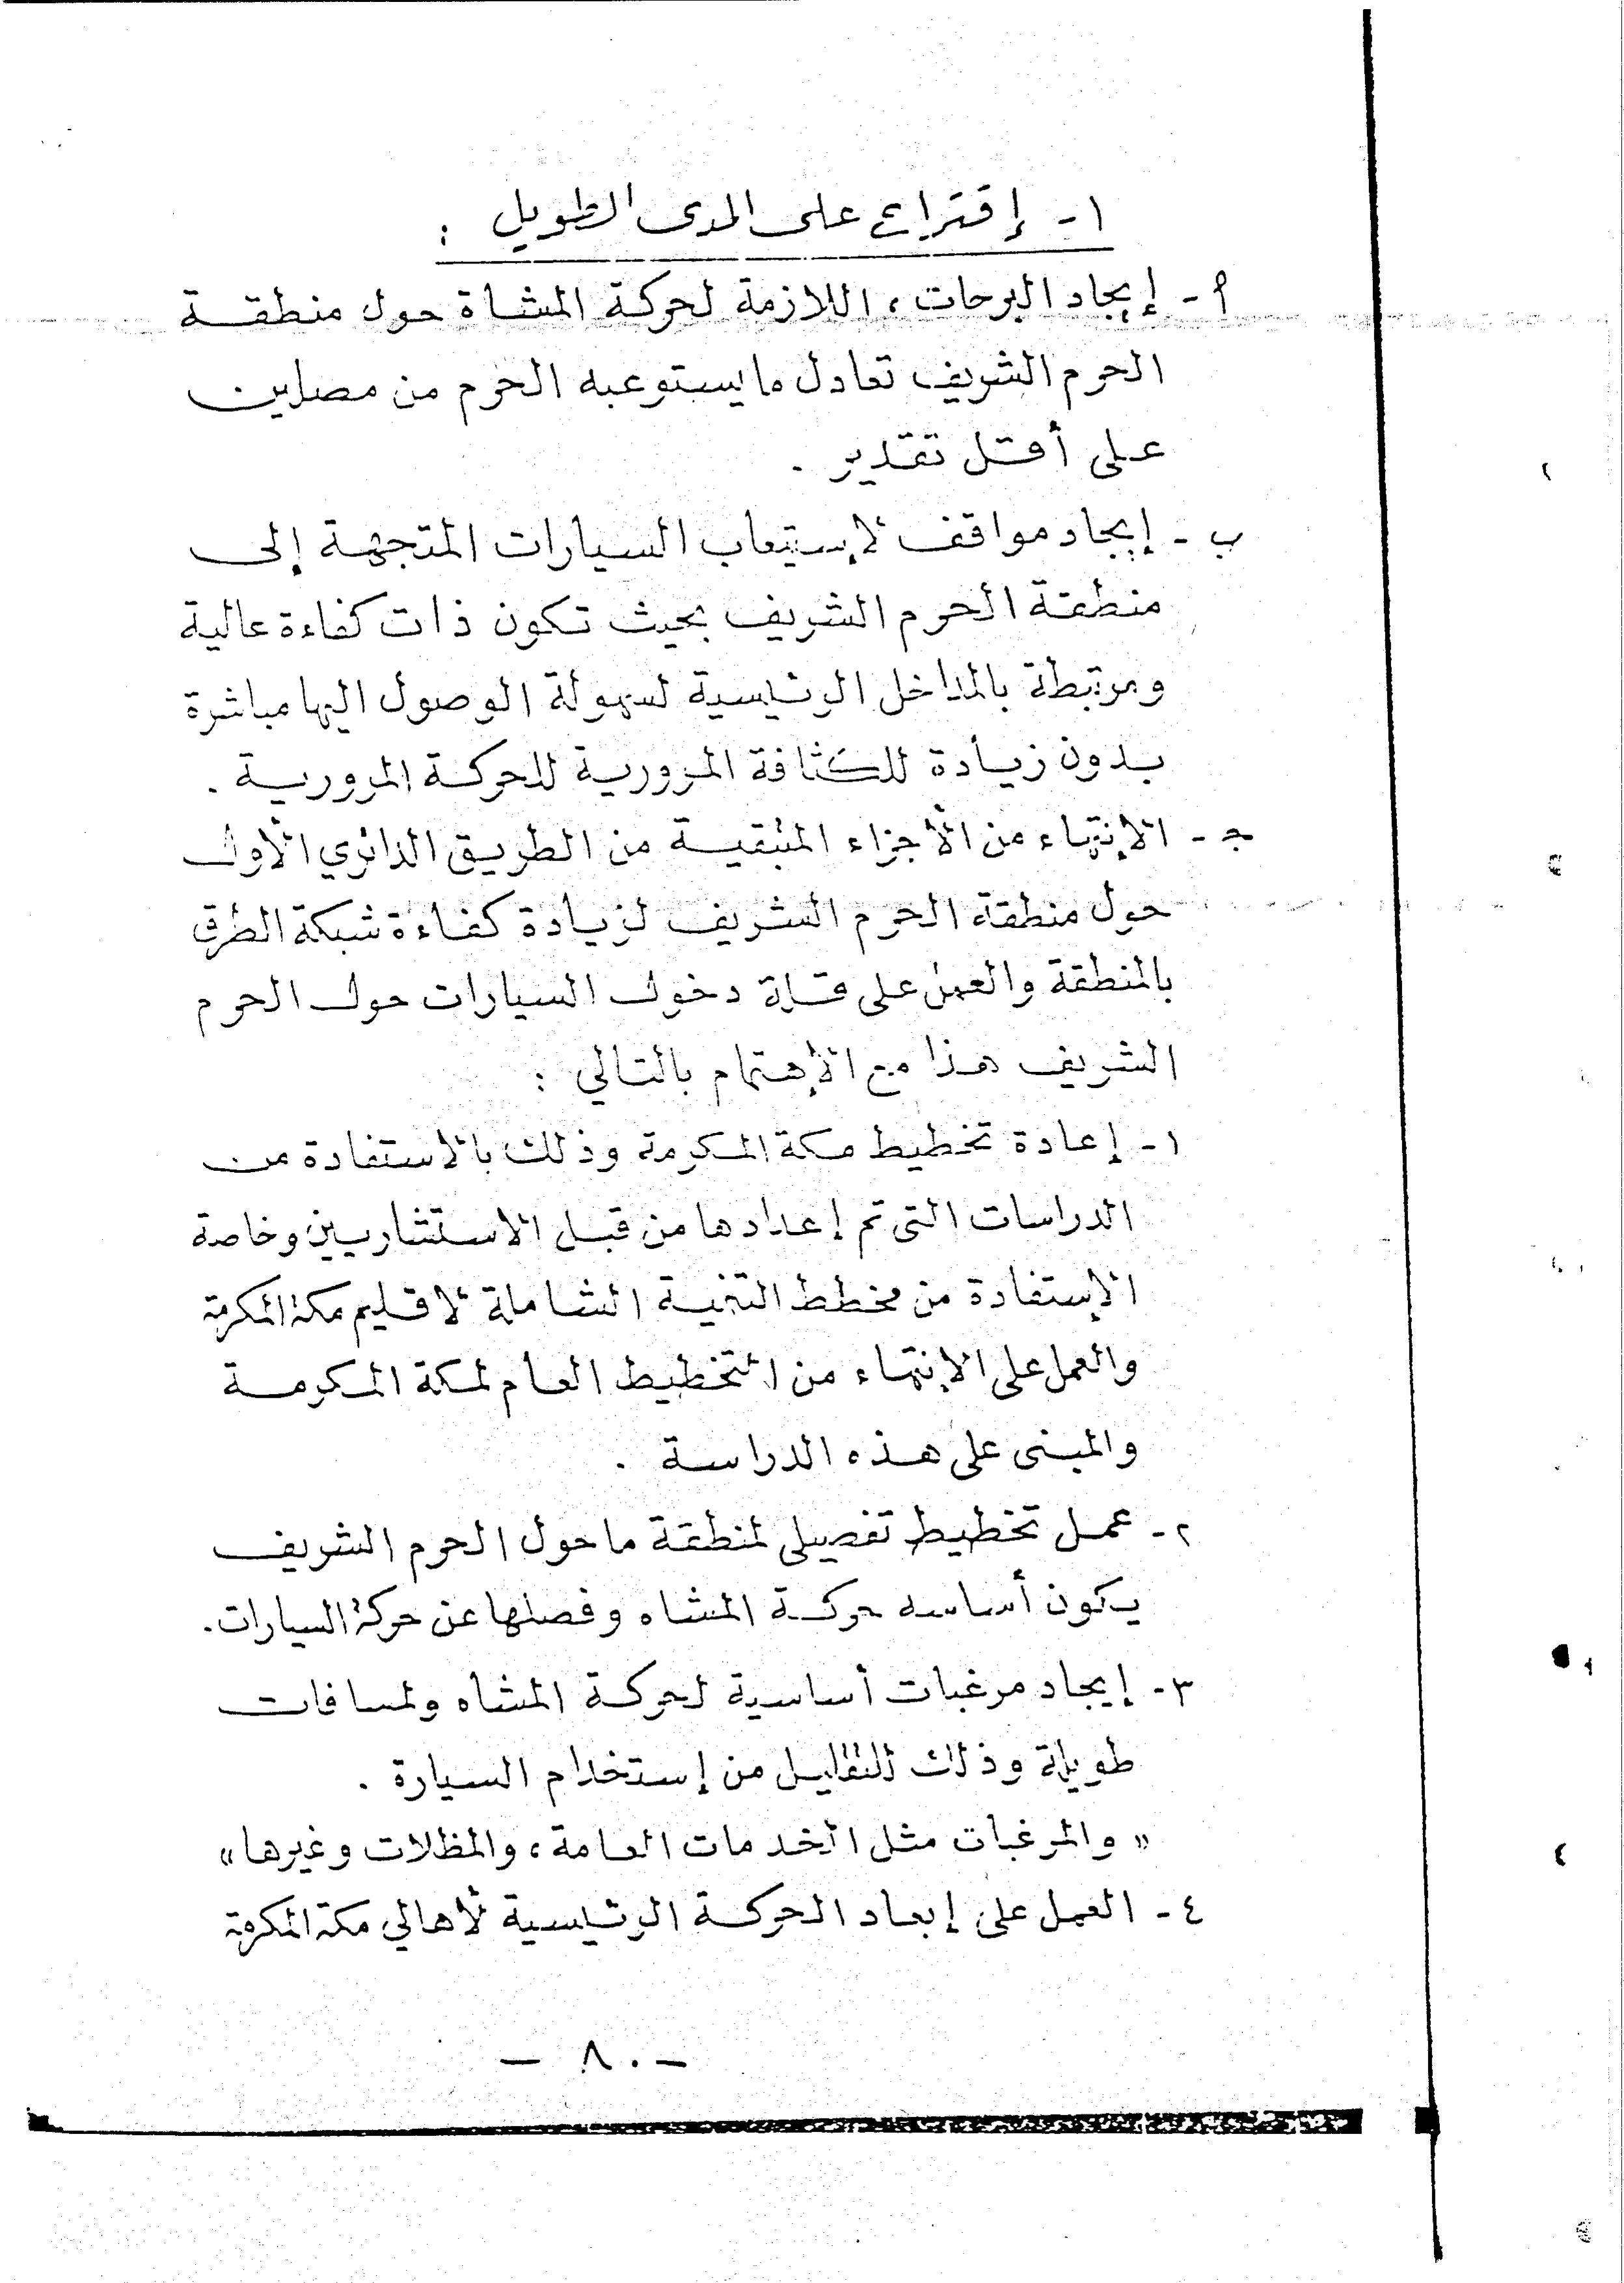 ١- إقتراح على المدى الطويل :
أ- إيجاد البرحات ، اللازمة لحركة المشاة حول منطقة
الحرم الشريف تعادل ما يستوعبه الحرم من مصلين
على أقل تقدير .
ب - إيجاد مواقف لإستيعاب السيارات المتجهة إلى
منطقة الحرم الشريف بحيث تكون ذات كفاءة عالية
ومرتبطة بالمداخل الرئيسية لسهولة الوصول اليها مباشرة
بدون زيادة للكثافة المرورية للحركة المرورية .
جـ - الإنتهاء من الأجزاء المتبقية من الطريق الدائري الأول
حول منطقة الحرم الشريف لزيادة كفاءة شبكة الطرق
بالمنطقة والعمل على قلة دخول السيارات حول الحرم
الشريف هذا مع الإهتمام بالتالي :
١- إعادة تخطيط مكة المكرمة وذلك بالاستفادة من
الدراسات التى تم إعدادها من قبل الاستشاريين وخاصة
الإستفادة من مخطط التنمية الشاملة لاقليم مكة المكرمة
والعمل على الإنتهاء من التخطيط العام لمكة المكرمة
والمبنى على هذه الدراسة .
٢- عمل تخطيط تفصيلى لمنطقة ما حول الحرم الشريف
يكون أساسه حركة المشاه وفصلها عن حركة السيارات.
٣- إيجاد مرغبات أساسية لحركة المشاه ولمسافات
طويلة وذلك للتقليل من إستخدام السيارة .
« والمرغبات مثل الخدمات العامة ، والمظلات وغيرها »
٤- العمل على إبعاد الحركة الرئيسية لأهالي مكة المكرمة
- ٨٠ -